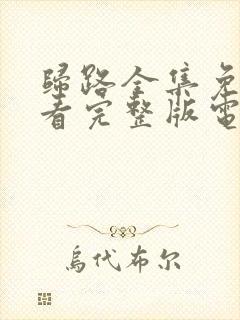 歸路全集免
看完整版電
烏代布尔